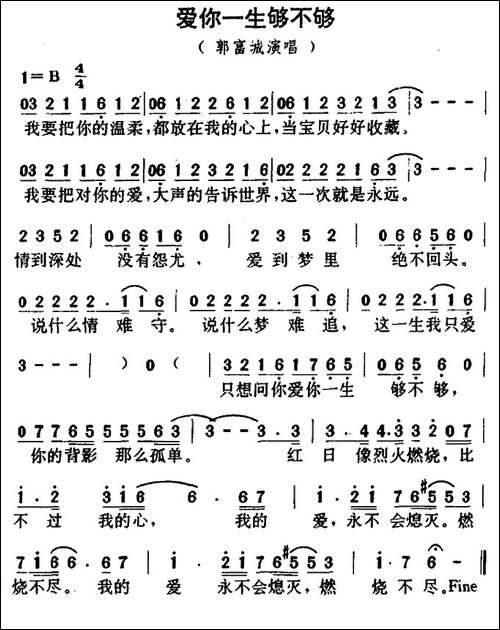 爱你一生够不够
（郭富城演唱）
1=B 4/4
03 2 1 1 6 1 2 | 06 1 2 2 6 1 2 | 06 1 2 3 2 1 3 | 3 - - - |
我要把你的温柔，都放在我的心上，当宝贝好好收藏。
03 2 1 1 6 1 2 | 06 1 2 2 6 1 2 | 02 2 2 2 1 6 3 | 3 - - - |
我要把对你的爱，大声的告诉世界，这一次就是永远。
2 3 5 2 | 0 6 6 1 6 0 | 2 3 5 2 | 0 6 6 5 6 0 |
情到深处 没有怨尤， 爱到梦里 绝不回头。
0 2 2 2 2 . 1 1 6 | 0 2 2 2 2 . 1 1 6 | 0 2 2 2 . 1 1 6 |
说什么情难守。 说什么梦难追， 这一生我只爱
3 - - - | ） 0 （ | 3 2 1 6 1 7 6 5 | 0 6 5 6 0 |
只想问你爱你一生 够不够，
0 7 7 6 5 5 5 5 6 3 | 3 - - 3 . 3 | 3 . 4 4 . 3 3 2 0 7 |
你的背影那么孤单。 红日 像烈火燃烧，比
1 . 2 3 1 6 6 . 6 7 | 1 . 2 1 7 6 #5 5 3 |
不过 我的心， 我的 爱，永不会熄灭。燃
7 1 6 6 . 6 7 | 1 . 2 1 7 6 #5 5 3 | 1 . 7 6 - ‖
烧不尽。我的 爱 永不会熄灭，燃 烧不尽。Fine